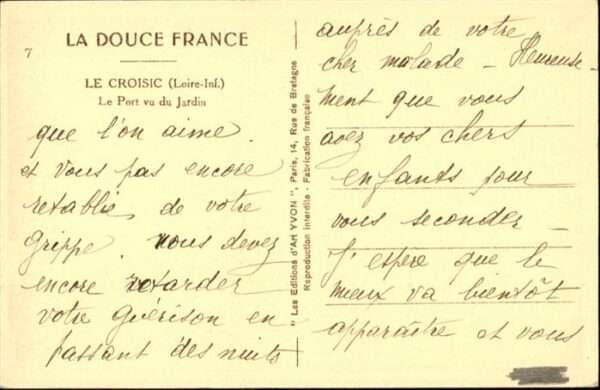 7
LA DOUCE FRANCE
LE CROISIC (Loire-Inf.)
Le Port vu du Jardin
que l'on aime
et vous pas encore
rétablie, de votre
grippe. vous devez
encore retarder
votre guérison en
passant des nuits
" Les Editions d'Art YVON ", Paris, 14, Rue de Bretagne
Reproduction interdite - Fabrication française
auprès de votre
cher malade - Heureuse-
ment que vous
avez vos chers
enfants pour
vous seconder -
J'espère que le
mieux va bientôt
apparaître et vous